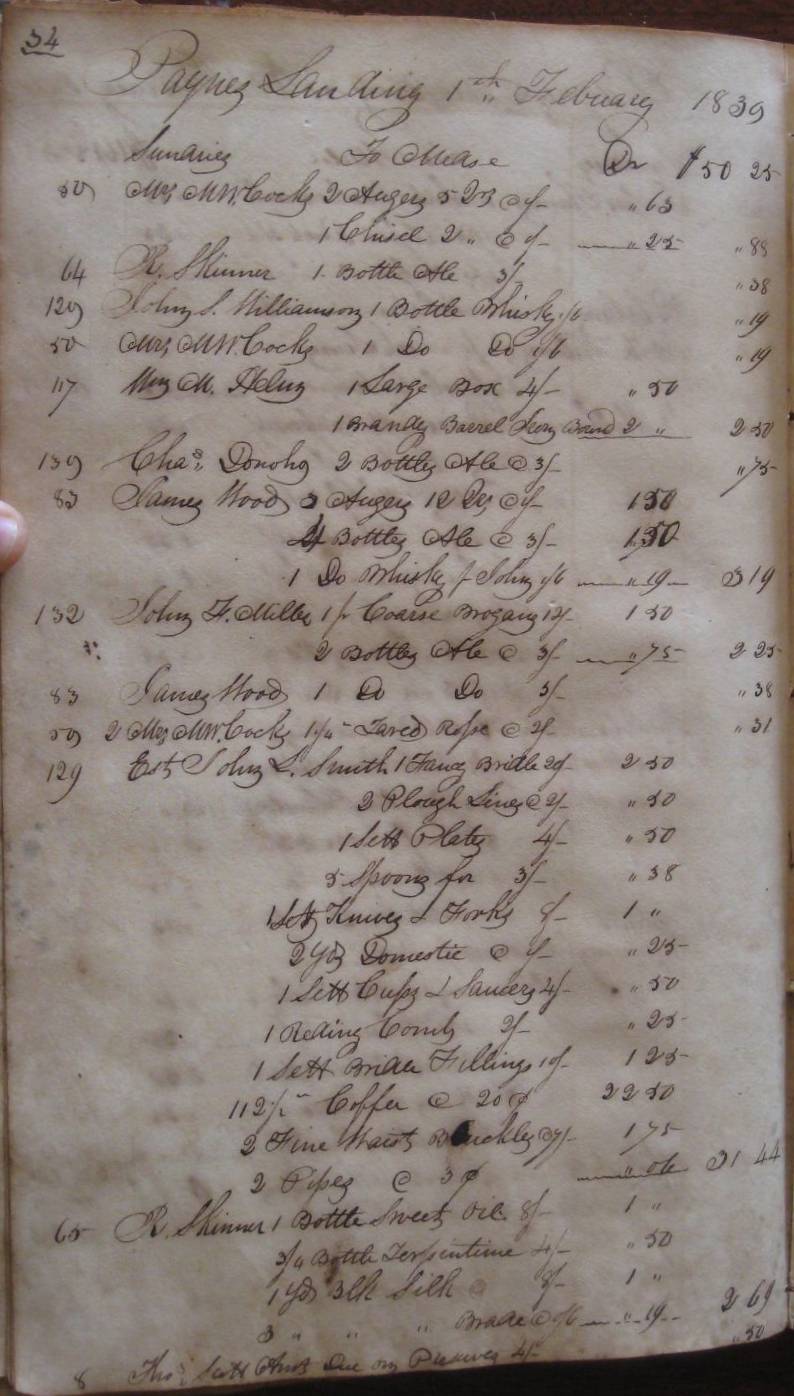 34
Paynes Landing 1st February 1839
Sundries To Mdse Dr $50 25
50 Mrs MW. Cocks 2 Augers 5 2rs @ 1/- " 63
1 Chisel 2 " @ 1/- " 25 " 88
64 R. Skinner 1 Bottle Ale 3/ " 38
129 John S. Williamson 1 Bottle Whisky 1/6 " 19
50 Mrs MW. Cocks 1 Do Do 1/6 " 19
117 M. Helm 1 Large Box 4/- " 50
1 Brandy Barrel Iron Bound 2 " 2 50
139 Chas. Donoho 2 Bottles Ale @ 3/- " 75
83 James Wood 3 Augers 12 Qrs @ 1/- 1 50
4 Bottles Ale @ 3/- 1 50
1 Do Whisky p John 1/6 " 19 3 19
132 John F. Miller 1 pr Coarse Brogans 12/- 1 50
2 Bottles Ale @ 3/- " 75 2 25
83 James Wood 1 Do Do 3/- " 38
50 Mrs MW. Cocks 1 1/4 Tared Rope @ 2/- " 31
129 Est John L. Smith 1 Fancy Bridle 20/- 2 50
2 Plough Lines @ 2/- " 50
1 Sett Plates 4/- " 50
5 Spoons for 3/- " 38
1 Sett Knives & Forks 8/- 1 "
2 Yds Domestic @ 1/- " 25
1 Sett Cups & Saucers 4/- " 50
1 Reding Comb 2/- " 25
1 Sett Bridle Fillings 10/- 1 25
112 1/2 Coffee @ 20 ¢ 22 50
2 Fine Waist Buckles @ 7/- 1 75
2 Pipes @ 3 ¢ " 06 31 44
65 R. Skinner 1 Bottle Sweet Oil 8/- 1 "
3/4 Bottle Terpintime 4/- " 50
1 Yds Blk Silk 8/- 1 "
3 " " " Brade @ /6 " 19 2 69
8 Thos Scott Amt Due on 4/- " 50